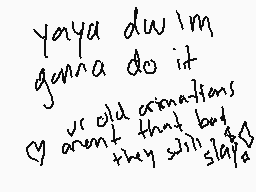 yaya dw im
gonna do it
ur old animations
♡ arent that bad
they still slay